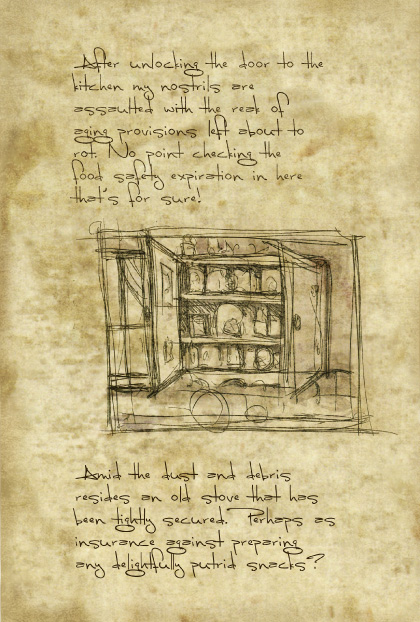 After unlocking the door to the
kitchen my nostrils are
assaulted with the reak of
aging provisions left about to
rot. No point checking the
food safety expiration in here
that's for sure!
Amid the dust and debris
resides an old stove that has
been tightly secured. Perhaps as
insurance against preparing
any delightfully putrid snacks?